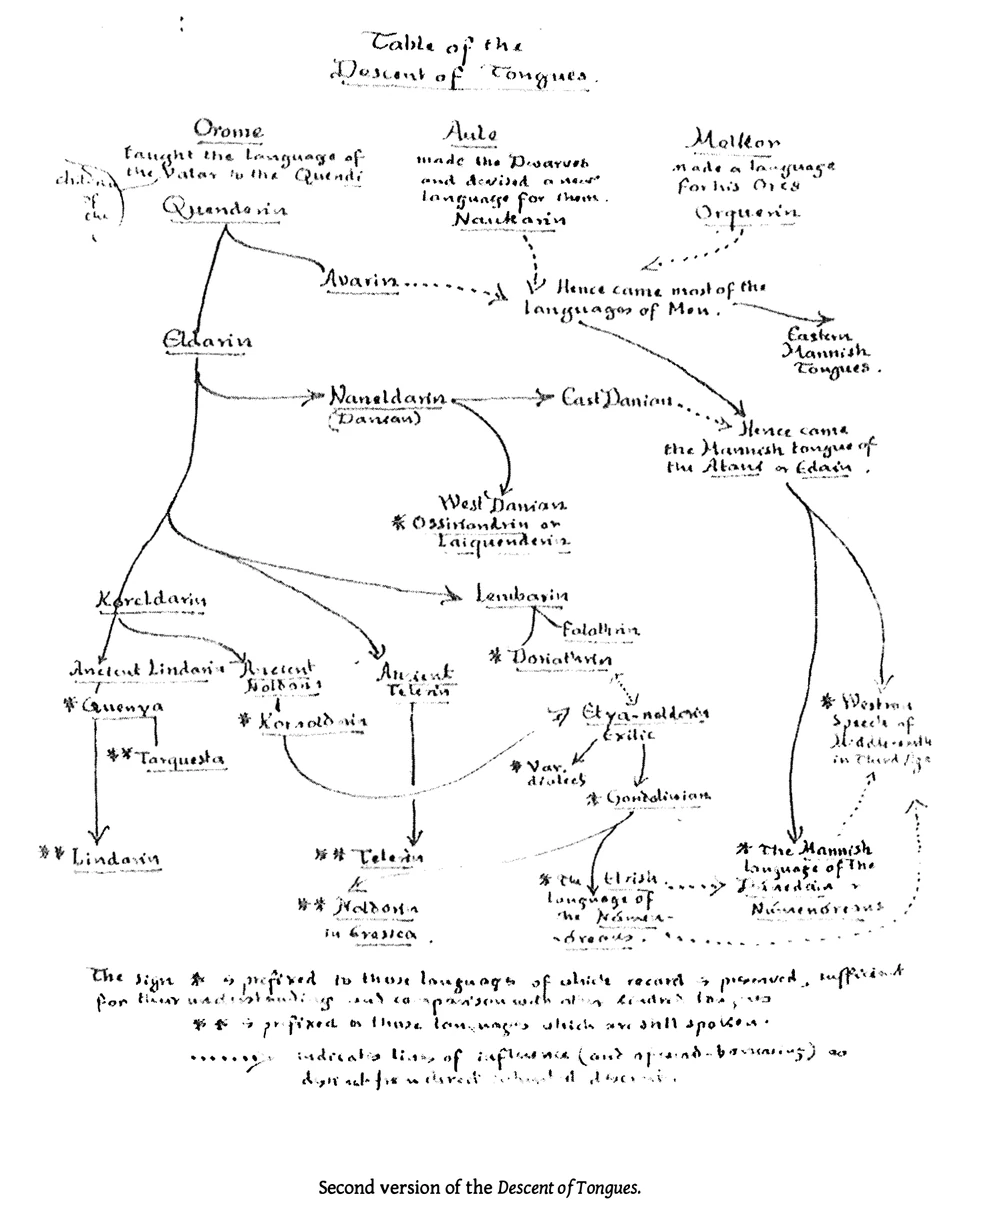 Table of the
Descent of Tongues.
Orome
taught the language of
the Valar to the Quendi
Quenderin
of
the
Aule
made the Dwarves
and devised a new
language for them.
Naukarin
Melkor
made a language
for his Orcs
Orquerin
Avarin
Hence came most of the
languages of Men.
Eastern
Mannish
Tongues.
Eldarin
Naneldarin
(Danian)
East Danian
Hence came
the Mannish tongue of
the Atani or Edain.
West Danian
* Ossiriandrin or
Laiquenderin
Koreldarin
Lembarin
Falathrin
* Doriathrin
Ancient Lindarin
Ancient
Noldorin
Ancient
Telerin
* Quenya
** Tarquesta
* Kornoldorin
Etya-noldorin
Exilic
* Var.
dialects
* Gondolinian
* Western
Speech of
Middle-earth
in Third Age
** Lindarin
** Telerin
** Noldorin
in Eressea.
* The Elvish
language of
the Númen-
óreans.
* The Mannish
language of the
Númenóreans
The sign * is prefixed to those languages of which record is preserved, sufficient
for their understanding and comparison with other kindred tongues
** is prefixed to those languages which are still spoken.
indicates lines of influence (and of word-borrowing) as
Second version of the Descent of Tongues.